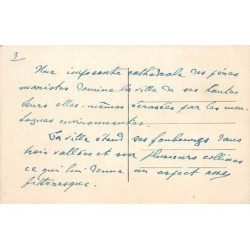 3
Une imposante cathédrale des pères
maristes domine la ville de ses hautes
tours elles-mêmes écrasées par les mon-
tagnes environnantes.
La ville étend ses faubourgs dans
trois vallées et sur plusieurs collines
ce qui lui donne un aspect assez
pittoresque.